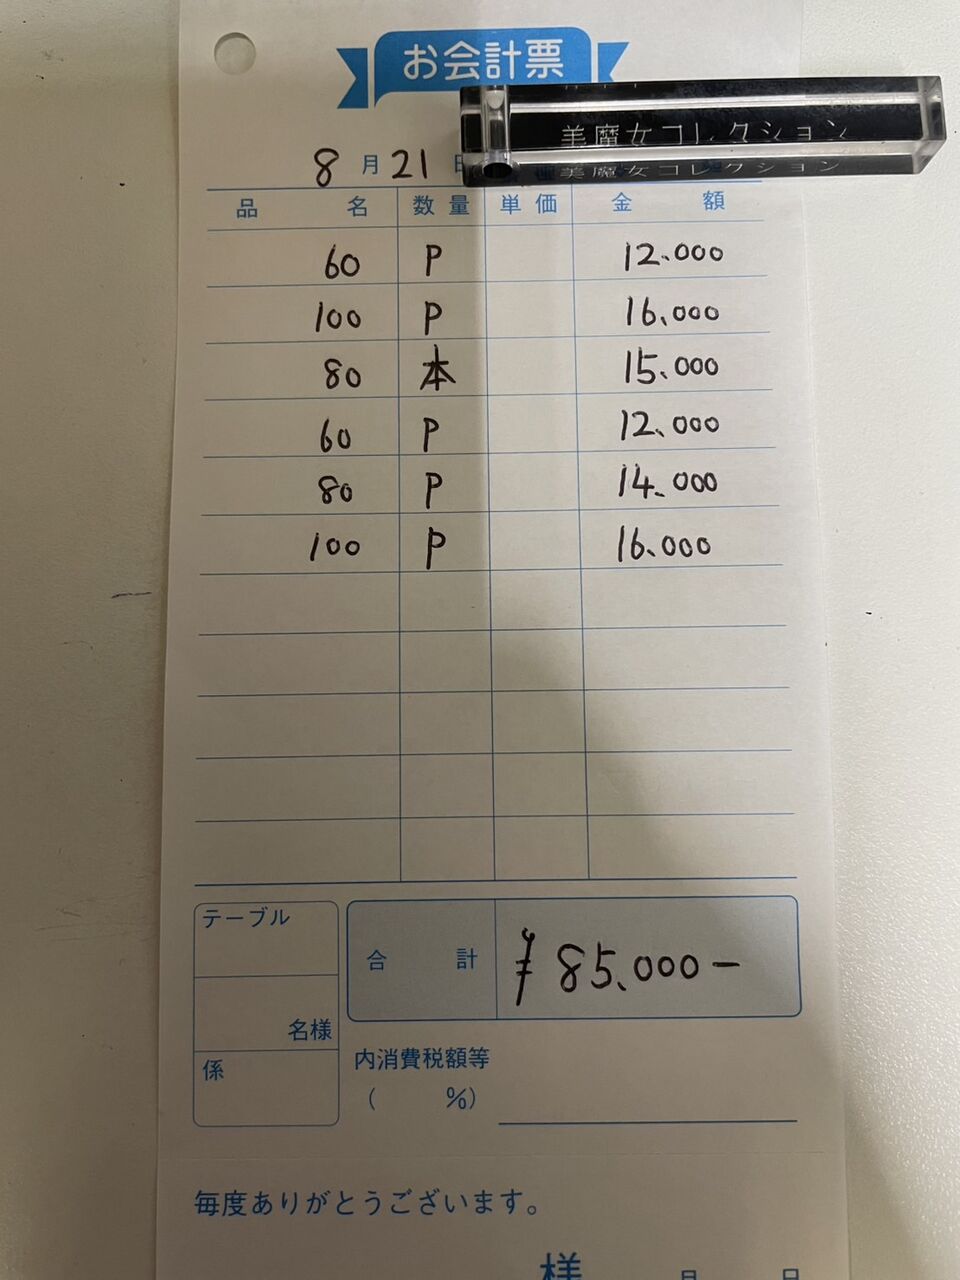 お会計票
美魔女コレクション
美魔女コレクション
8月21日
品名 数量 単価 金額
60 P 12.000
100 P 16.000
80 本 15.000
60 P 12.000
80 P 14.000
100 P 16.000
テーブル
合計 ¥85.000-
名様
係
内消費税額等
( %)
毎度ありがとうございます。
様 月 日